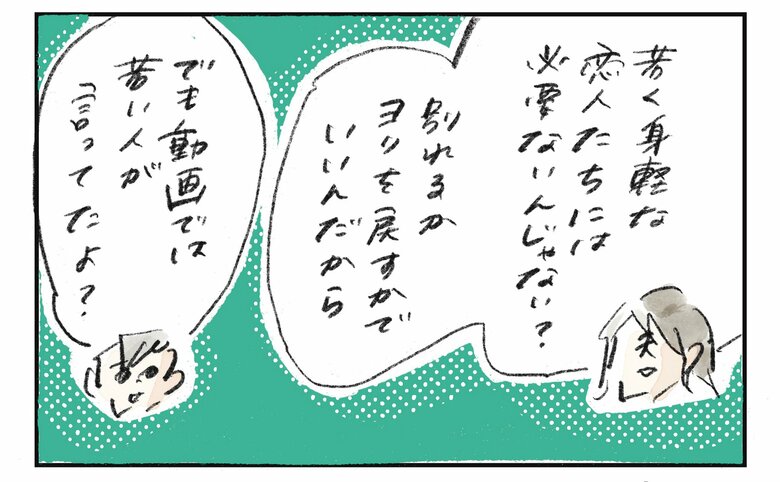 若く身軽な
恋人たちには
必要ないんじゃない？
別れるか
ヨリを戻すかで
いいんだから
でも動画では
若い人が
言ってたよ？